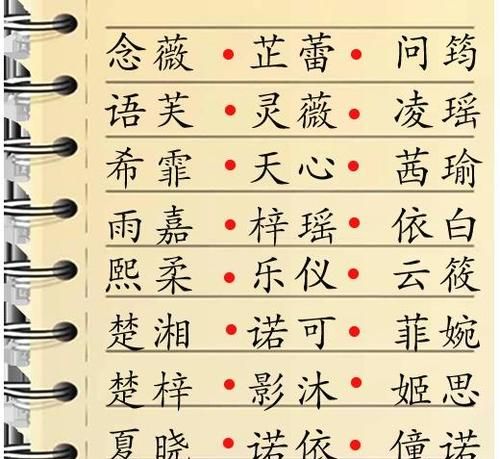 念薇•芷蕾•问筠
语芙•灵薇•凌瑶
希霏•天心•茜瑜
雨嘉•梓瑶•依白
熙柔•乐仪•云筱
楚湘•诺可•菲婉
楚梓•影沐•姬思
夏晓•诺依•僮诺